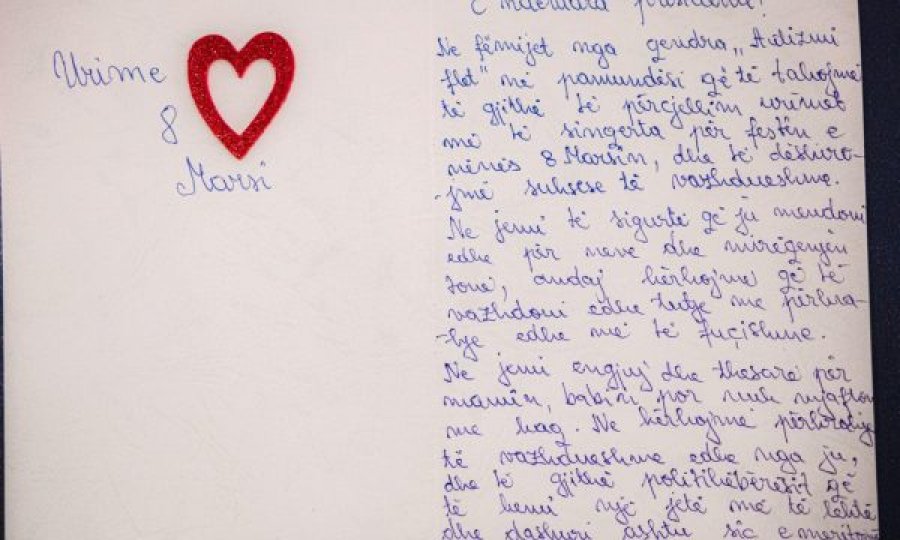 Urime
8
Marsi
E nderuara presidente!
Ne fëmijet nga qendra „Autizmi
flet" në pamundësi që të takojmë
të gjithë të përcjellim urimet
më të singerta për festën e
nënës 8 Marsin, dhe të dëshiro-
-jmë suksese të vazhdueshme.
Ne jemi të sigurtë që ju mendoni
edhe për neve dhe mirëqenjen
tonë, andaj kërkojmë që të
vazhdoni edhe tutje me përkra-
-hje edhe më të fuqishme.
Ne jemi engjuj dhe thesare për
mamin, babin por nuk mjafton
me kaq. Ne kërkojmë përkrahje
të vazhdueshme edhe nga ju,
dhe të gjithë politikëbërësit që
të kemi një jetë më të lehtë
dhe dashuri ashtu siç e meritojmë